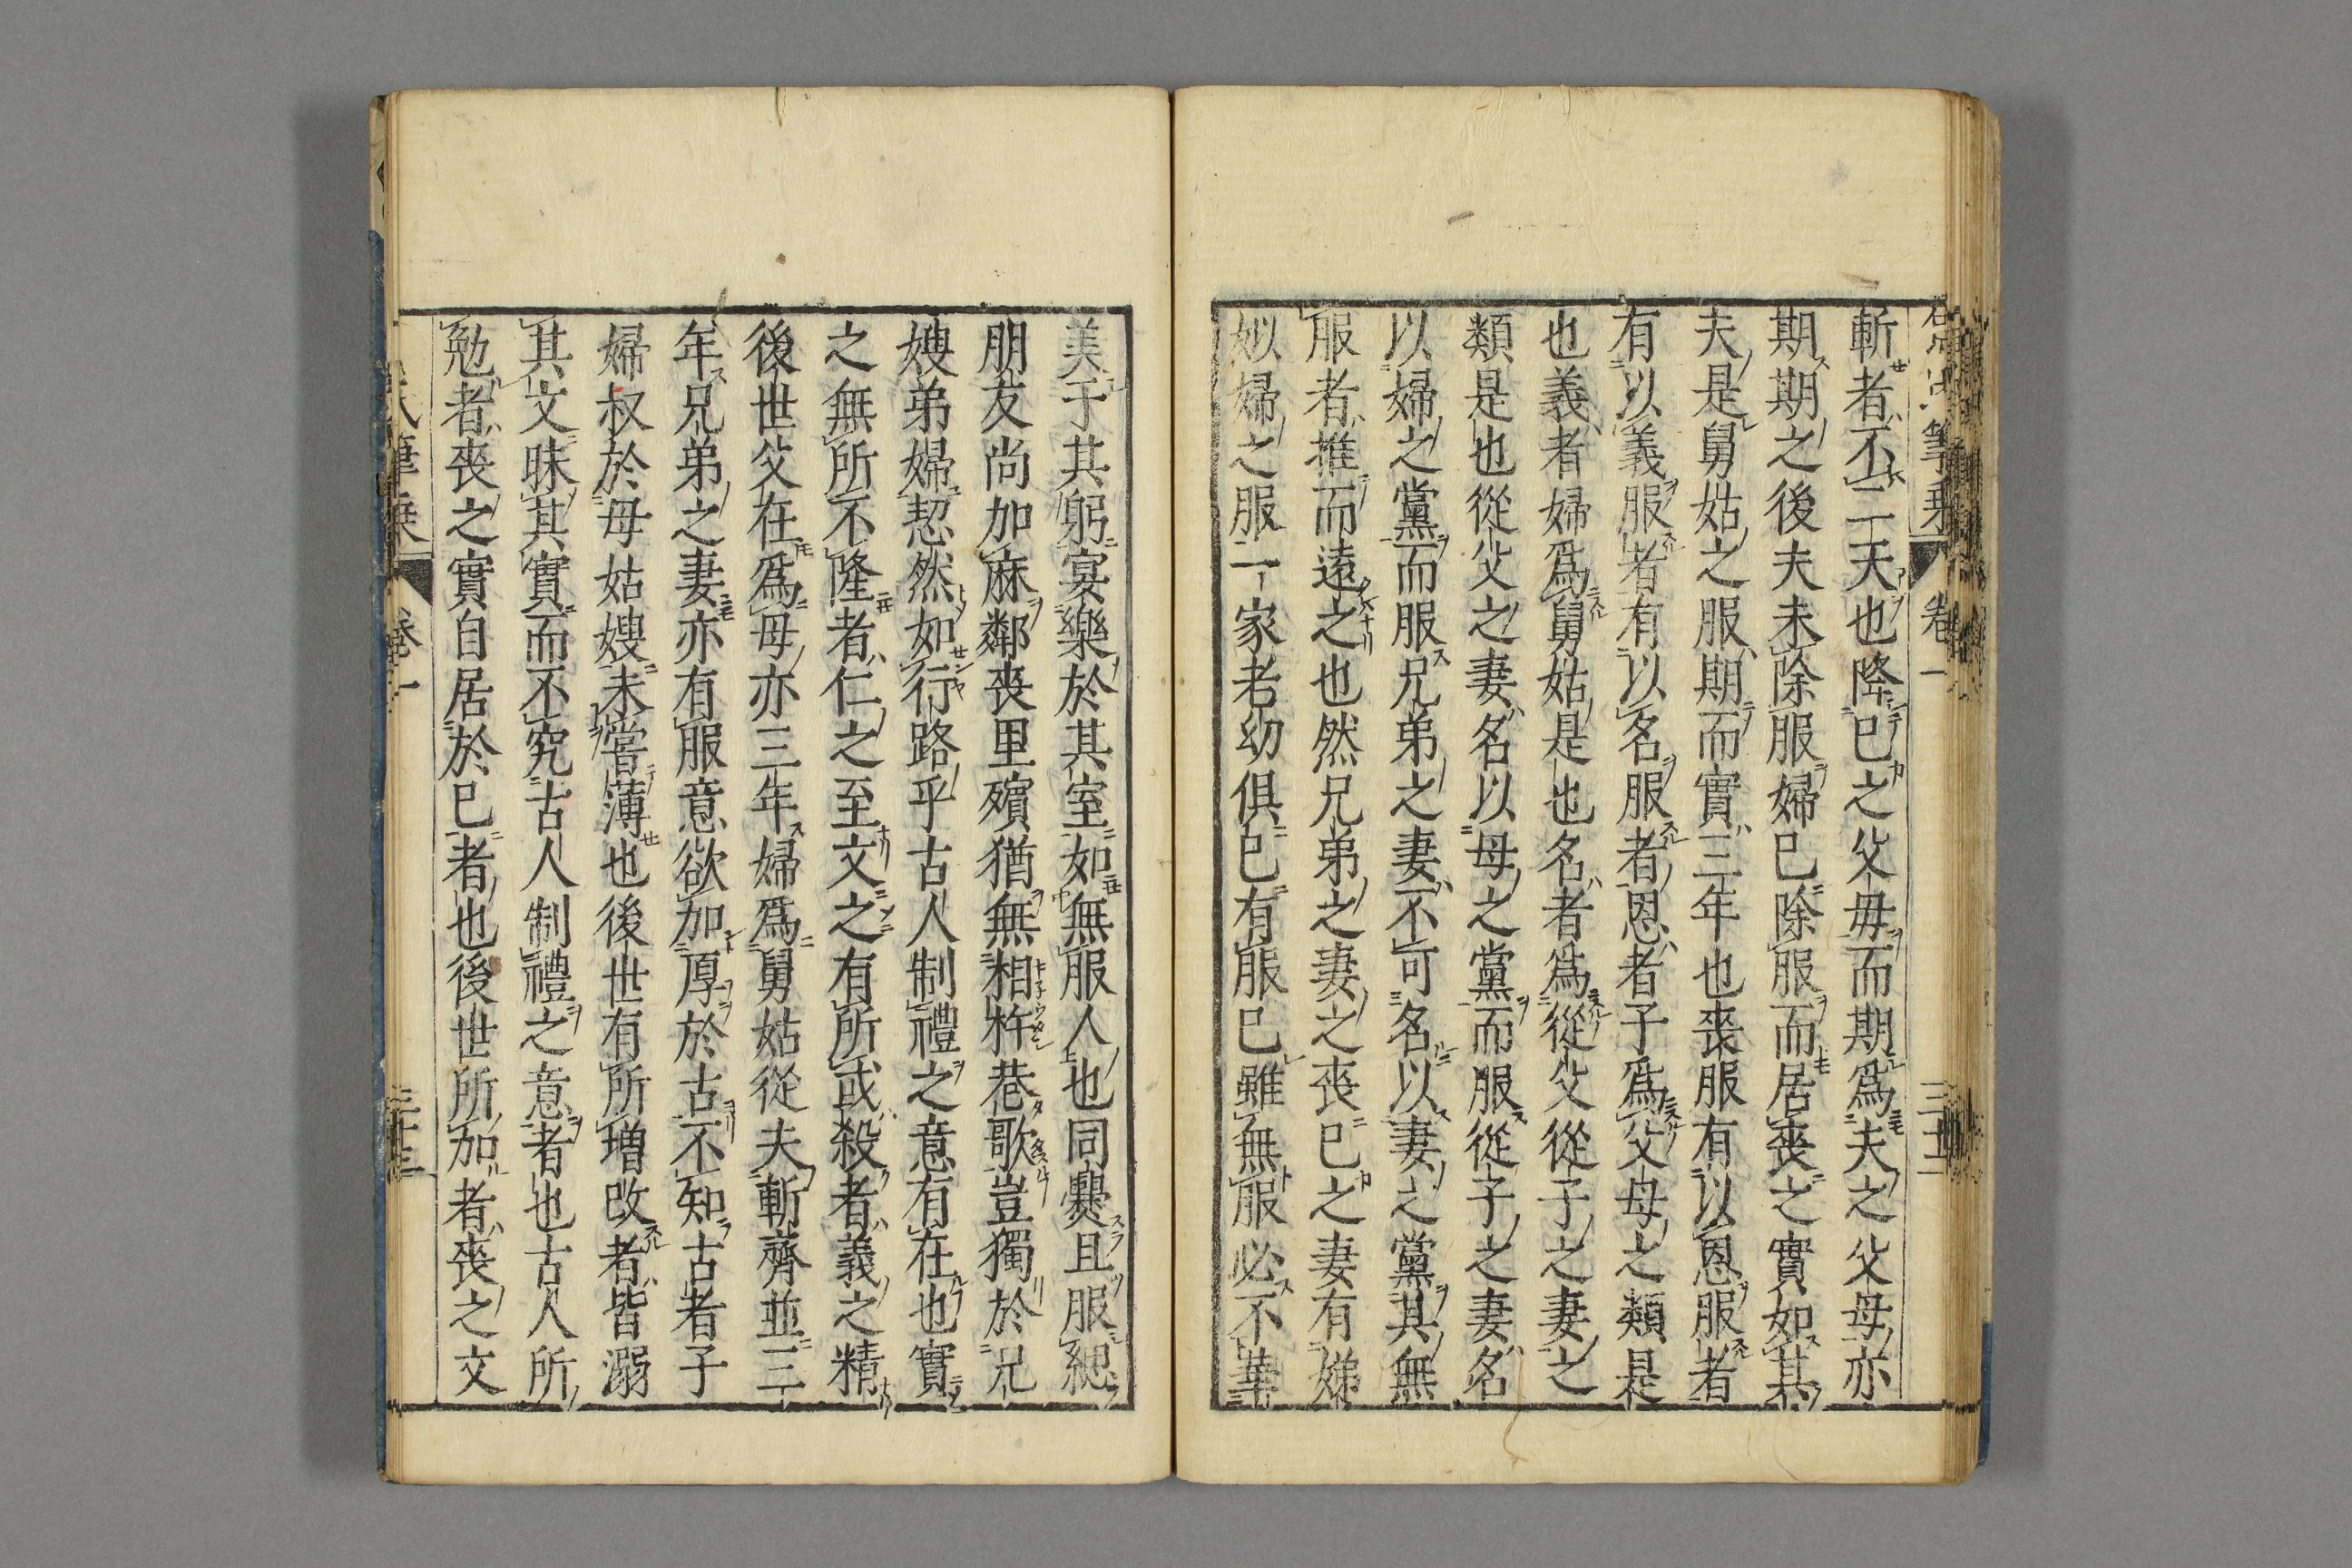 斬者不二天也降已之父母而期爲夫之父母亦
期期之後夫未除服婦已除服而居喪之實如其
夫是舅姑之服期而實三年也喪服有以恩服者
有以義服者有以名服者恩者子爲父母之類是
也義者婦爲舅姑是也名者爲從父從子之妻之
類是也從父之妻名以母之黨而服從子之妻名
以婦之黨而服兄弟之妻不可名以妻之黨其無
服者推而遠之也然兄弟之妻之喪已之妻有娣
姒婦之服一家老幼俱已有服已雖無服必不華
美于其躬宴樂於其室如無服人也同爨且服緦
朋友尚加麻鄰喪里殯猶無相杵巷歌豈獨於兄
嫂弟婦恝然如行路乎古人制禮之意有在也實
之無所不隆者仁之至文之有所或殺者義之精
後世父在爲母亦三年婦爲舅姑從夫斬齊並三
年兄弟之妻亦有服意欲加厚於古不知古者子
婦叔於母姑嫂未嘗薄也後世有所增改者皆溺
其文昧其實而不究古人制禮之意者也古人所
勉者喪之實自居於已者也後世所加者喪之文
筆乗 卷一
筆乗 卷一 三十三